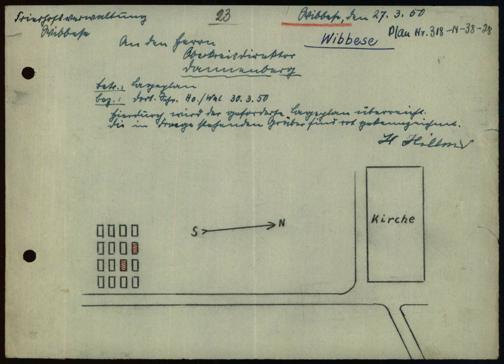 Friedhofsverwaltung
Wibbese
23
Wibbese, den 27. 3. 50
Wibbese
Plan Nr. 318-N-38-38
An den Herrn
Oberkreisdirektor
Dannenberg
betr.: Lageplan
bez.: dort. Schr. Ho./Wal 30. 3. 50
Hierdurch wird der geforderte Lageplan überreicht.
Die in Frage stehenden Gräber sind rot gekennzeichnet.
S
N
Kirche